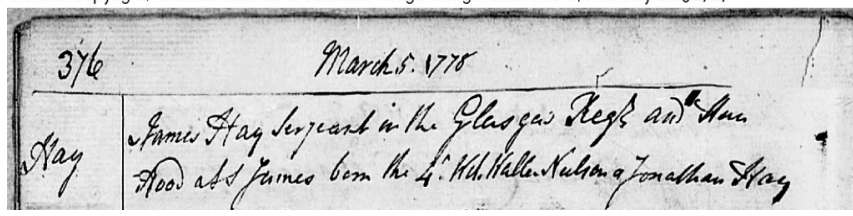 376 March 5. 1778
Hay James Hay Serjeant in the Glasgow Regt. and
Hood a l S James born the 4t. Wit. Walter Neilson & Jonathan Hay